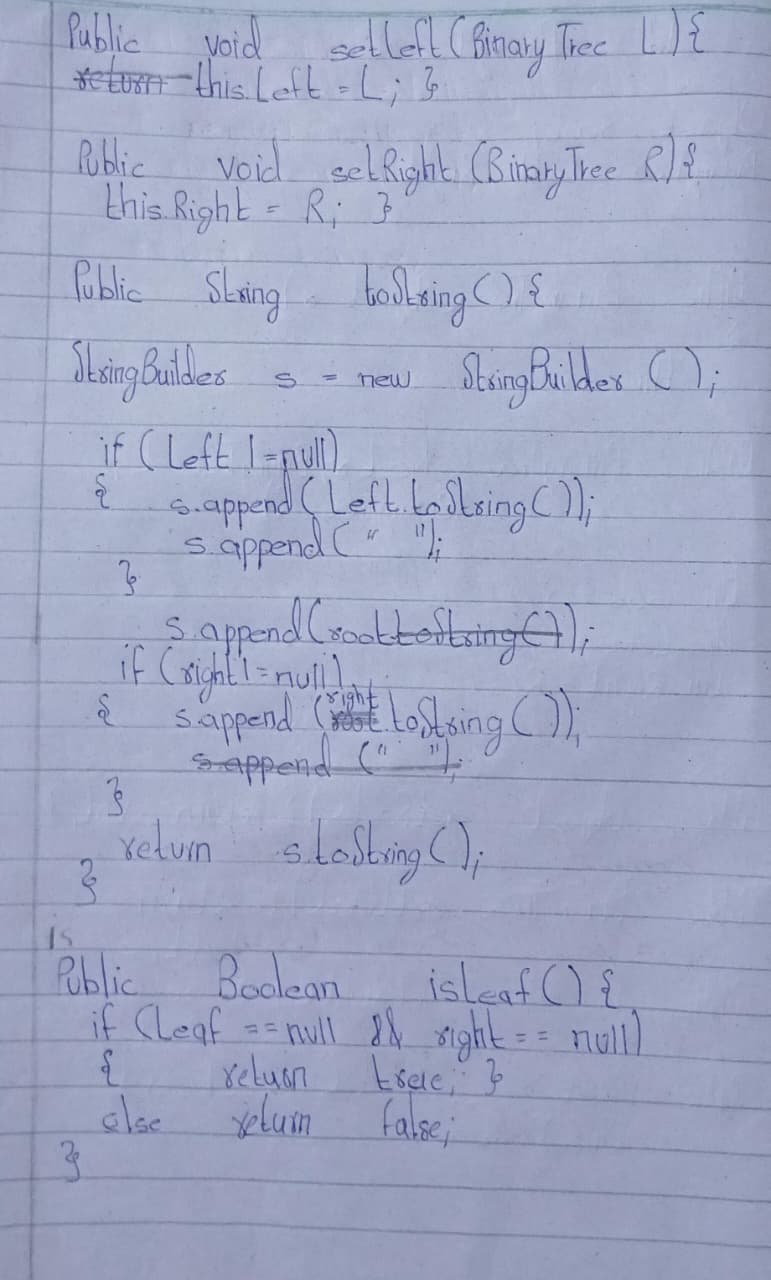 Public void setLeft (Binary Tree L) {
return this.Left = L; }
Public void setRight (Binary Tree R) {
this.Right = R; }
Public String toString () {
StringBuilder s = new StringBuilder ();
if (Left != null)
{ s.append (Left.toString ());
s.append (" ");
}
s.append (root toString ());
if (right != null)
{ s.append (root right.toString ());
s.append (" ");
}
return s.toString ();
}
is
Public Boolean isLeaf () {
if (Leaf == null && right == null)
{ return true; }
else return false;
}